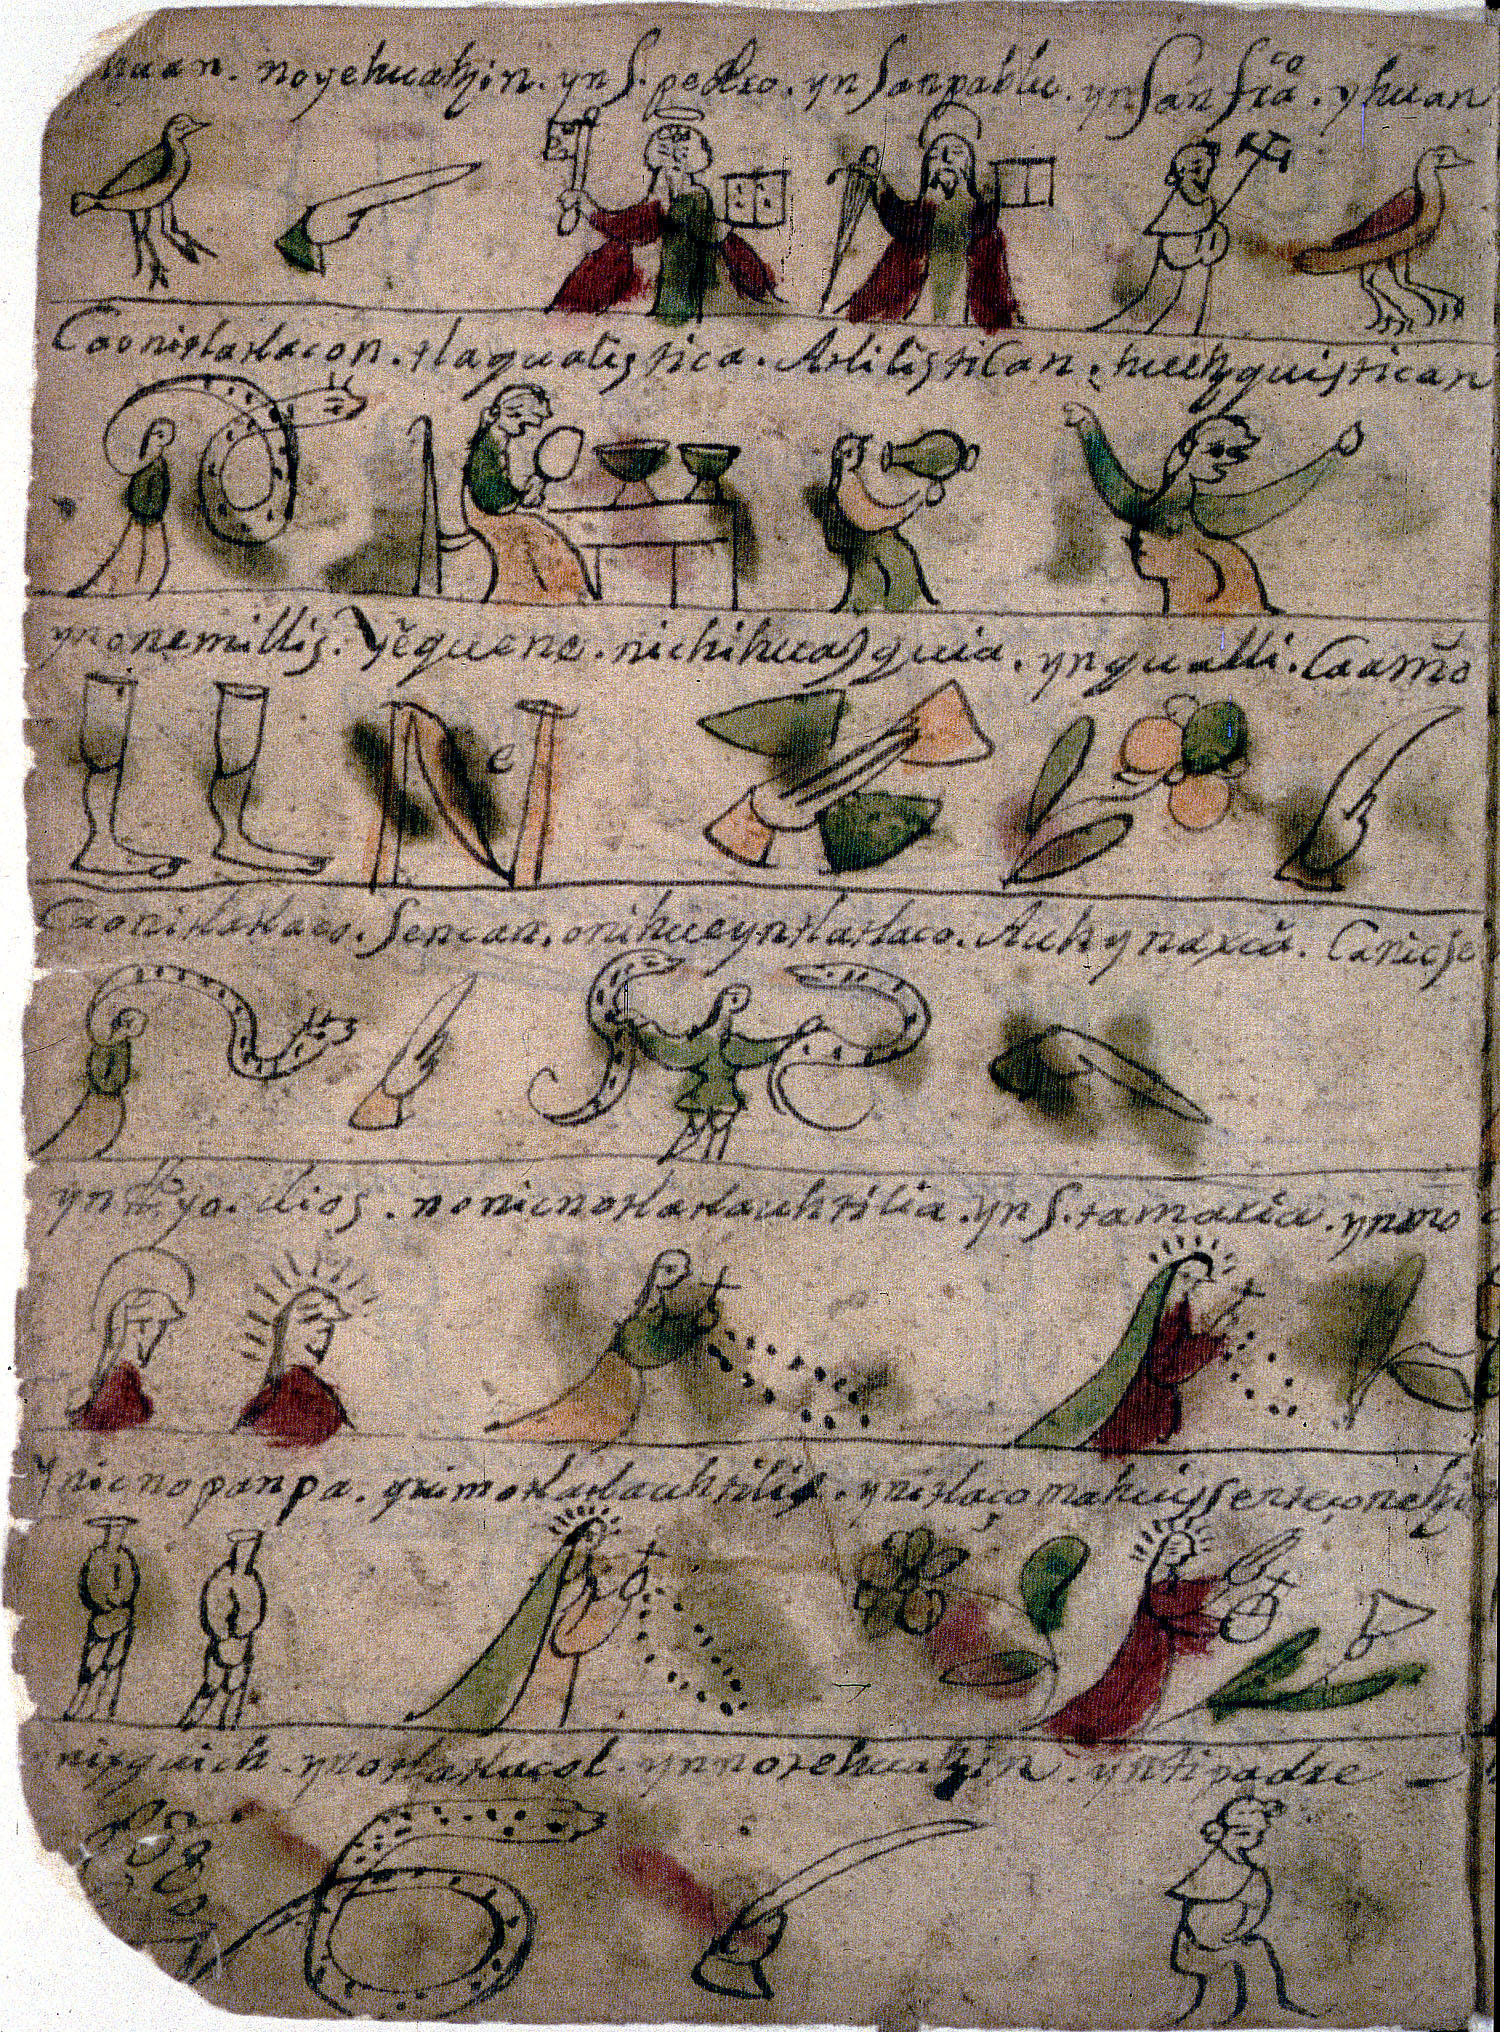 huan. noyehuatzin. yn S. pedro. yn San pablu. yn San fraco. yhuan
Caonitlatlacon. tlaqualistica. Atlilistican. huetzquistican
ynonemillis. Yēquene. nichihuasquia. yn qualli. Caamo
Caonitlatlaco. Sencan. onihueyntlatlaco. Auh ynaxcā. Canicse
yn tto yo. dios. nonicnotlatlauhtilia. yn S. ta maria. ynmo
ynicnopanpa. quimotlatlauhtilis. ynitlaço mahuissenteconetzi
nixquich. ynotlatlacol. ynmotehuatzin. yntipadre